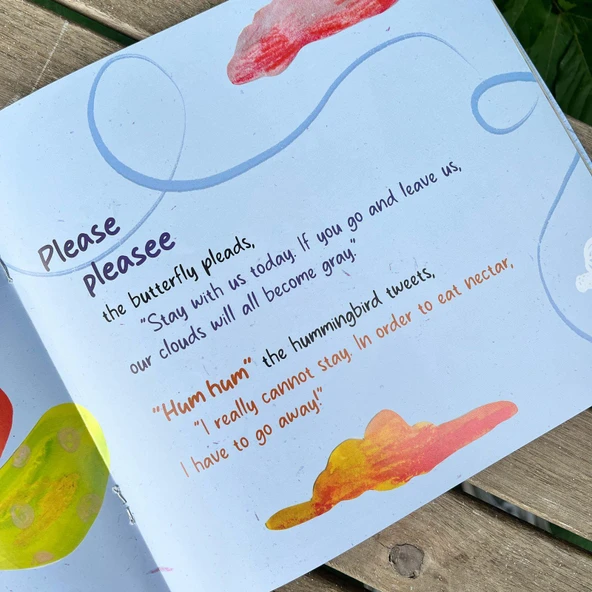 Please
pleasee
the butterfly pleads,
"Stay with us today. If you go and leave us,
our clouds will all become gray."
"Hum hum" the hummingbird tweets,
"I really cannot stay. In order to eat nectar,
I have to go away!"